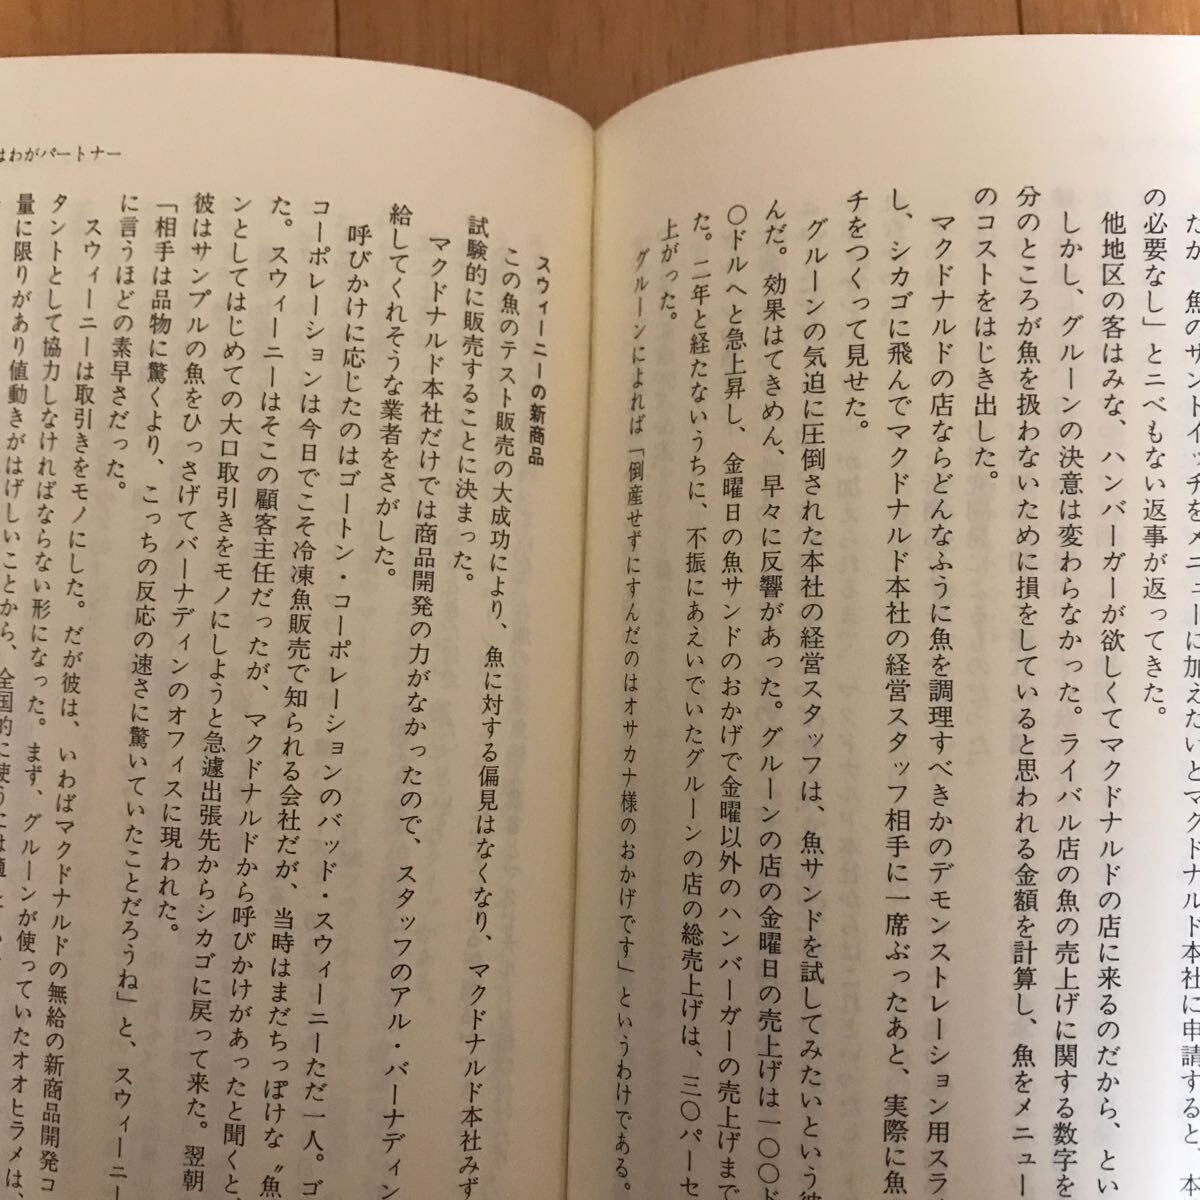 だが、魚のサンドイッチをメニューに加えたいとマクドナルド本社に申請すると、本
の必要なし」とニベもない返事が返ってきた。
他地区の客はみな、ハンバーガーが欲しくてマクドナルドの店に来るのだから、とい
しかし、グルーンの決意は変わらなかった。ライバル店の魚の売上げに関する数字を
分のところが魚を扱わないために損をしていると思われる金額を計算し、魚をメニュー
のコストをはじき出した。
マクドナルドの店ならどんなふうに魚を調理すべきかのデモンストレーション用スラ
し、シカゴに飛んでマクドナルド本社の経営スタッフ相手に一席ぶったあと、実際に魚
チをつくって見せた。
グルーンの気迫に圧倒された本社の経営スタッフは、魚サンドを試してみたいという彼
んだ。効果はてきめん、早々に反響があった。グルーンの店の金曜日の売上げは一〇〇ド
〇ドルへと急上昇し、金曜日の魚サンドのおかげで金曜以外のハンバーガーの売上げまで
た。二年と経たないうちに、不振にあえいでいたグルーンの店の総売上げは、三〇パーセ
上がった。
グルーンによれば「倒産せずにすんだのはオサカナ様のおかげです」というわけである。
はわがパートナー
スウィーニーの新商品
この魚のテスト販売の大成功により、魚に対する偏見はなくなり、マクドナルド本社みず
試験的に販売することに決まった。
マクドナルド本社だけでは商品開発の力がなかったので、スタッフのアル・バーナディン
給してくれそうな業者をさがした。
呼びかけに応じたのはゴートン・コーポレーションのバッド・スウィーニーただ一人。ゴ
コーポレーションは今日でこそ冷凍魚販売で知られる会社だが、当時はまだちっぽけな〝魚
た。スウィーニーはそこの顧客主任だったが、マクドナルドから呼びかけがあったと聞くと、
ンとしてはじめての大口取引きをモノにしようと急遽出張先からシカゴに戻って来た。翌朝
彼はサンプルの魚をひっさげてバーナディンのオフィスに現われた。
「相手は品物に驚くより、こっちの反応の速さに驚いていたことだろうね」と、スウィーニー
に言うほどの素早さだった。
スウィーニーは取引きをモノにした。だが彼は、いわばマクドナルドの無給の新商品開発コ
タントとして協力しなければならない形になった。まず、グルーンが使っていたオオヒラメは、
量に限りがあり値動きがはげしいことから、全国的に使うには